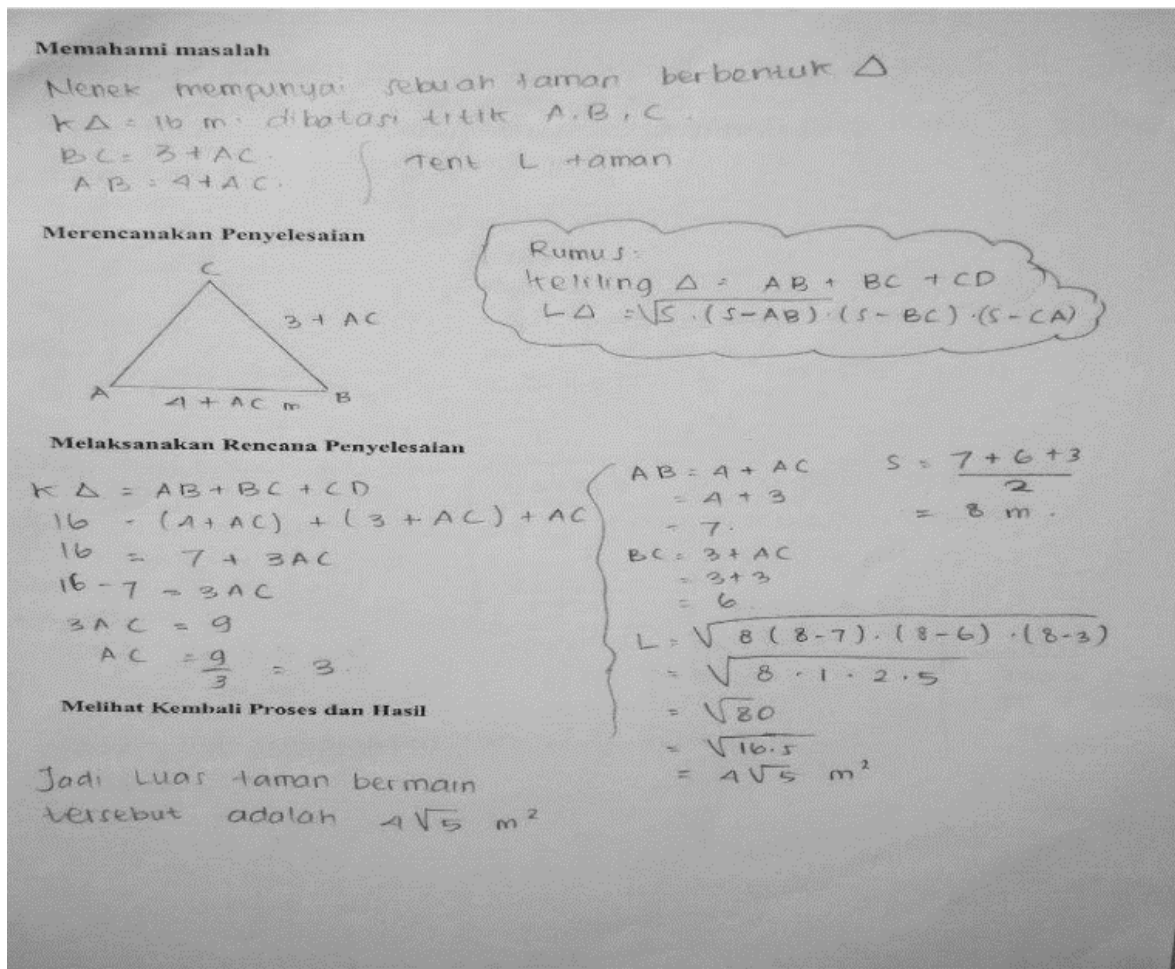 Memahami masalah
Nenek mempunyai sebuah taman berbentuk △
K△ = 16 m. dibatasi titik A, B, C.
BC = 3 + AC.
AB = 4 + AC.
Tent L taman
Merencanakan Penyelesaian
C
3 + AC
A
4 + AC m
B
Rumus:
Keliling △ = AB + BC + CD
L△ = √S . (S-AB) . (S-BC) . (S-CA)
Melaksanakan Rencana Penyelesaian
K △ = AB + BC + CD
16 = (4 + AC) + (3 + AC) + AC
16 = 7 + 3AC
16 - 7 = 3AC
3AC = 9
AC = 9/3 = 3.
AB = 4 + AC
= 4 + 3
= 7.
BC = 3 + AC
= 3 + 3
= 6.
S = 7 + 6 + 3 / 2
= 8 m.
L = √8 (8-7) . (8-6) . (8-3)
= √8 . 1 . 2 . 5
= √80
= √16.5
= 4√5 m²
Melihat Kembali Proses dan Hasil
Jadi Luas taman bermain
tersebut adalah 4√5 m²